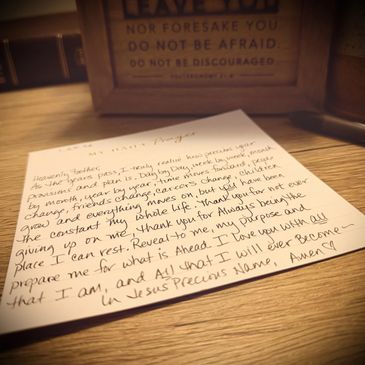 LEAVE YOU
NOR FORESAKE YOU.
DO NOT BE AFRAID.
DO NOT BE DISCOURAGED.
MY DAILY Prayer
Heavenly Father,
As the years pass, I truly realize how precious your
promises and plan is. Day by Day, week by week, month
by month, year by year, time moves forward, people
change, friends change, careers change, children
grow and everything moves on, but you have been
the constant my whole life. Thank you for not ever
giving up on me, thank you for Always being the
place I can rest. Reveal to me, my purpose and
prepare me for what is Ahead. I love you with all
that I am, and All that I will ever become—
In Jesus Precious Name, Amen ♡